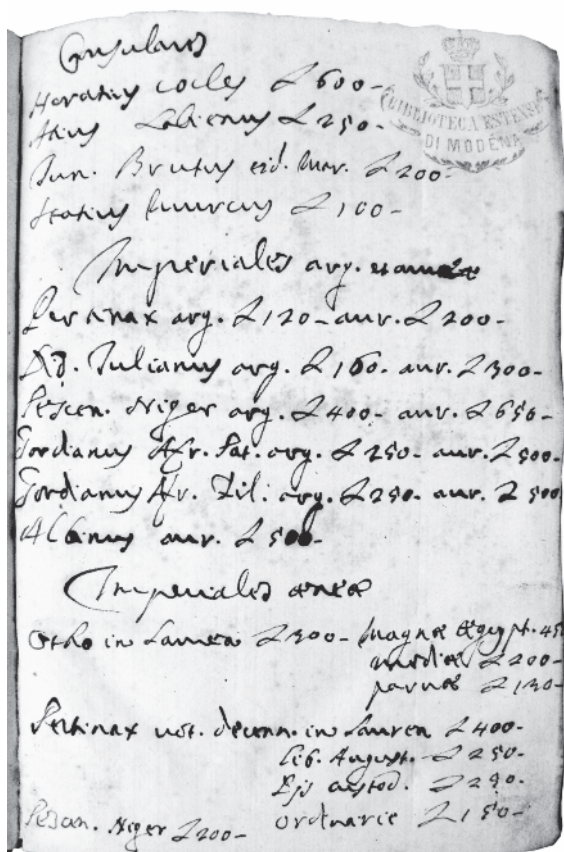 Consulares
BIBLIOTECA ESTENSE
DI MODENA
Horatius Cocles L 600-
Atius Labienus L 250-
Jun. Brutus eid. Mar. L 200-
Statius Murcus L 100-
Imperiales arg.
Pertinax arg. L 120- aur. L 200-
Did. Julianus arg. L 160- aur. L 300-
Pescen. Niger arg. L 400- aur. L 650-
Gordianus Afr. Pat. arg. L 250- aur. L 500-
Gordianus Afr. Fil. arg. L 250- aur. L 500
Albinus aur. L 500-
Imperiales æneæ
Otho in Laurea L 300- Magnæ Ægypt. 45
mediæ L 200-
parvæ L 130-
Pertinax vot. decenn. in Laurea L 400-
Lib. August. L 250-
L 250-
Pescen. Niger L 200- ordinarie L 150-